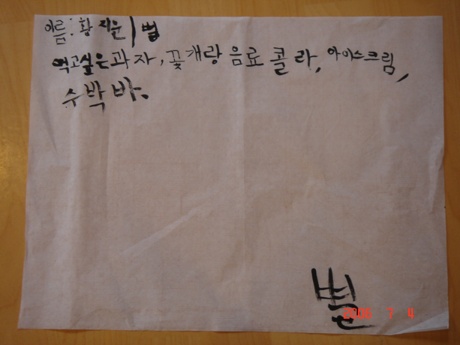 이름: 황지윤 1번
먹고싶은과자, 꽃게랑 음료 콜라, 아이스크림,
수박바.
2006 1 4